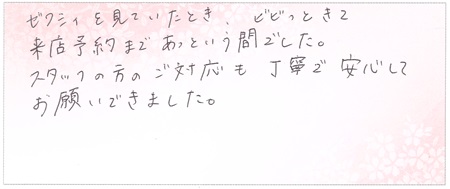 ゼクシィを見ていたとき、ビビっときて
来店予約まであっという間でした。
スタッフの方のご対応も丁寧で安心して
お願いできました。